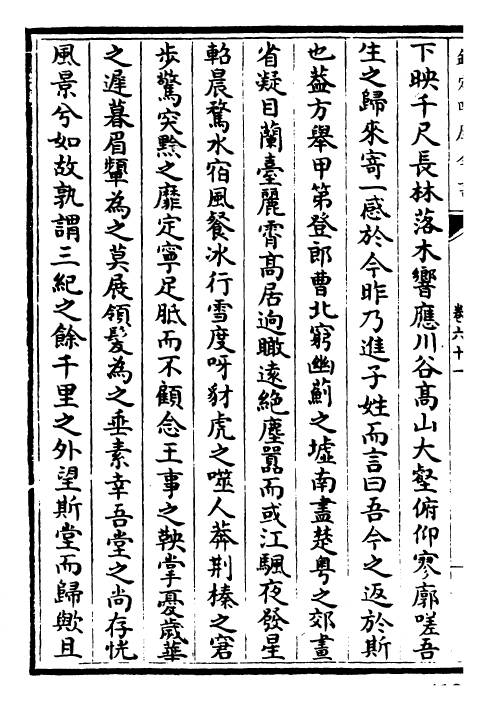 欽定四庫全書
卷六十一
下映千尺長林落木響應川谷髙山大壑俯仰寥廓嗟吾
生之歸來寄一感於今昨乃進子姓而言曰吾今之返於斯
也葢方舉甲第登郎曹北窮幽薊之墟南盡楚粤之郊畫
省凝目蘭臺麗霄髙居逈瞰遠絶塵囂而或江颿夜發星
軺晨騖水宿風餐冰行雪度呀豺虎之噬人莽荆榛之窘
歩驚突黔之靡定寧足胝而不顧念王事之鞅掌憂歳華
之遲暮眉顰為之莫展領髮為之垂素幸吾堂之尚存恍
風景兮如故孰謂三紀之餘千里之外望斯堂而歸歟且